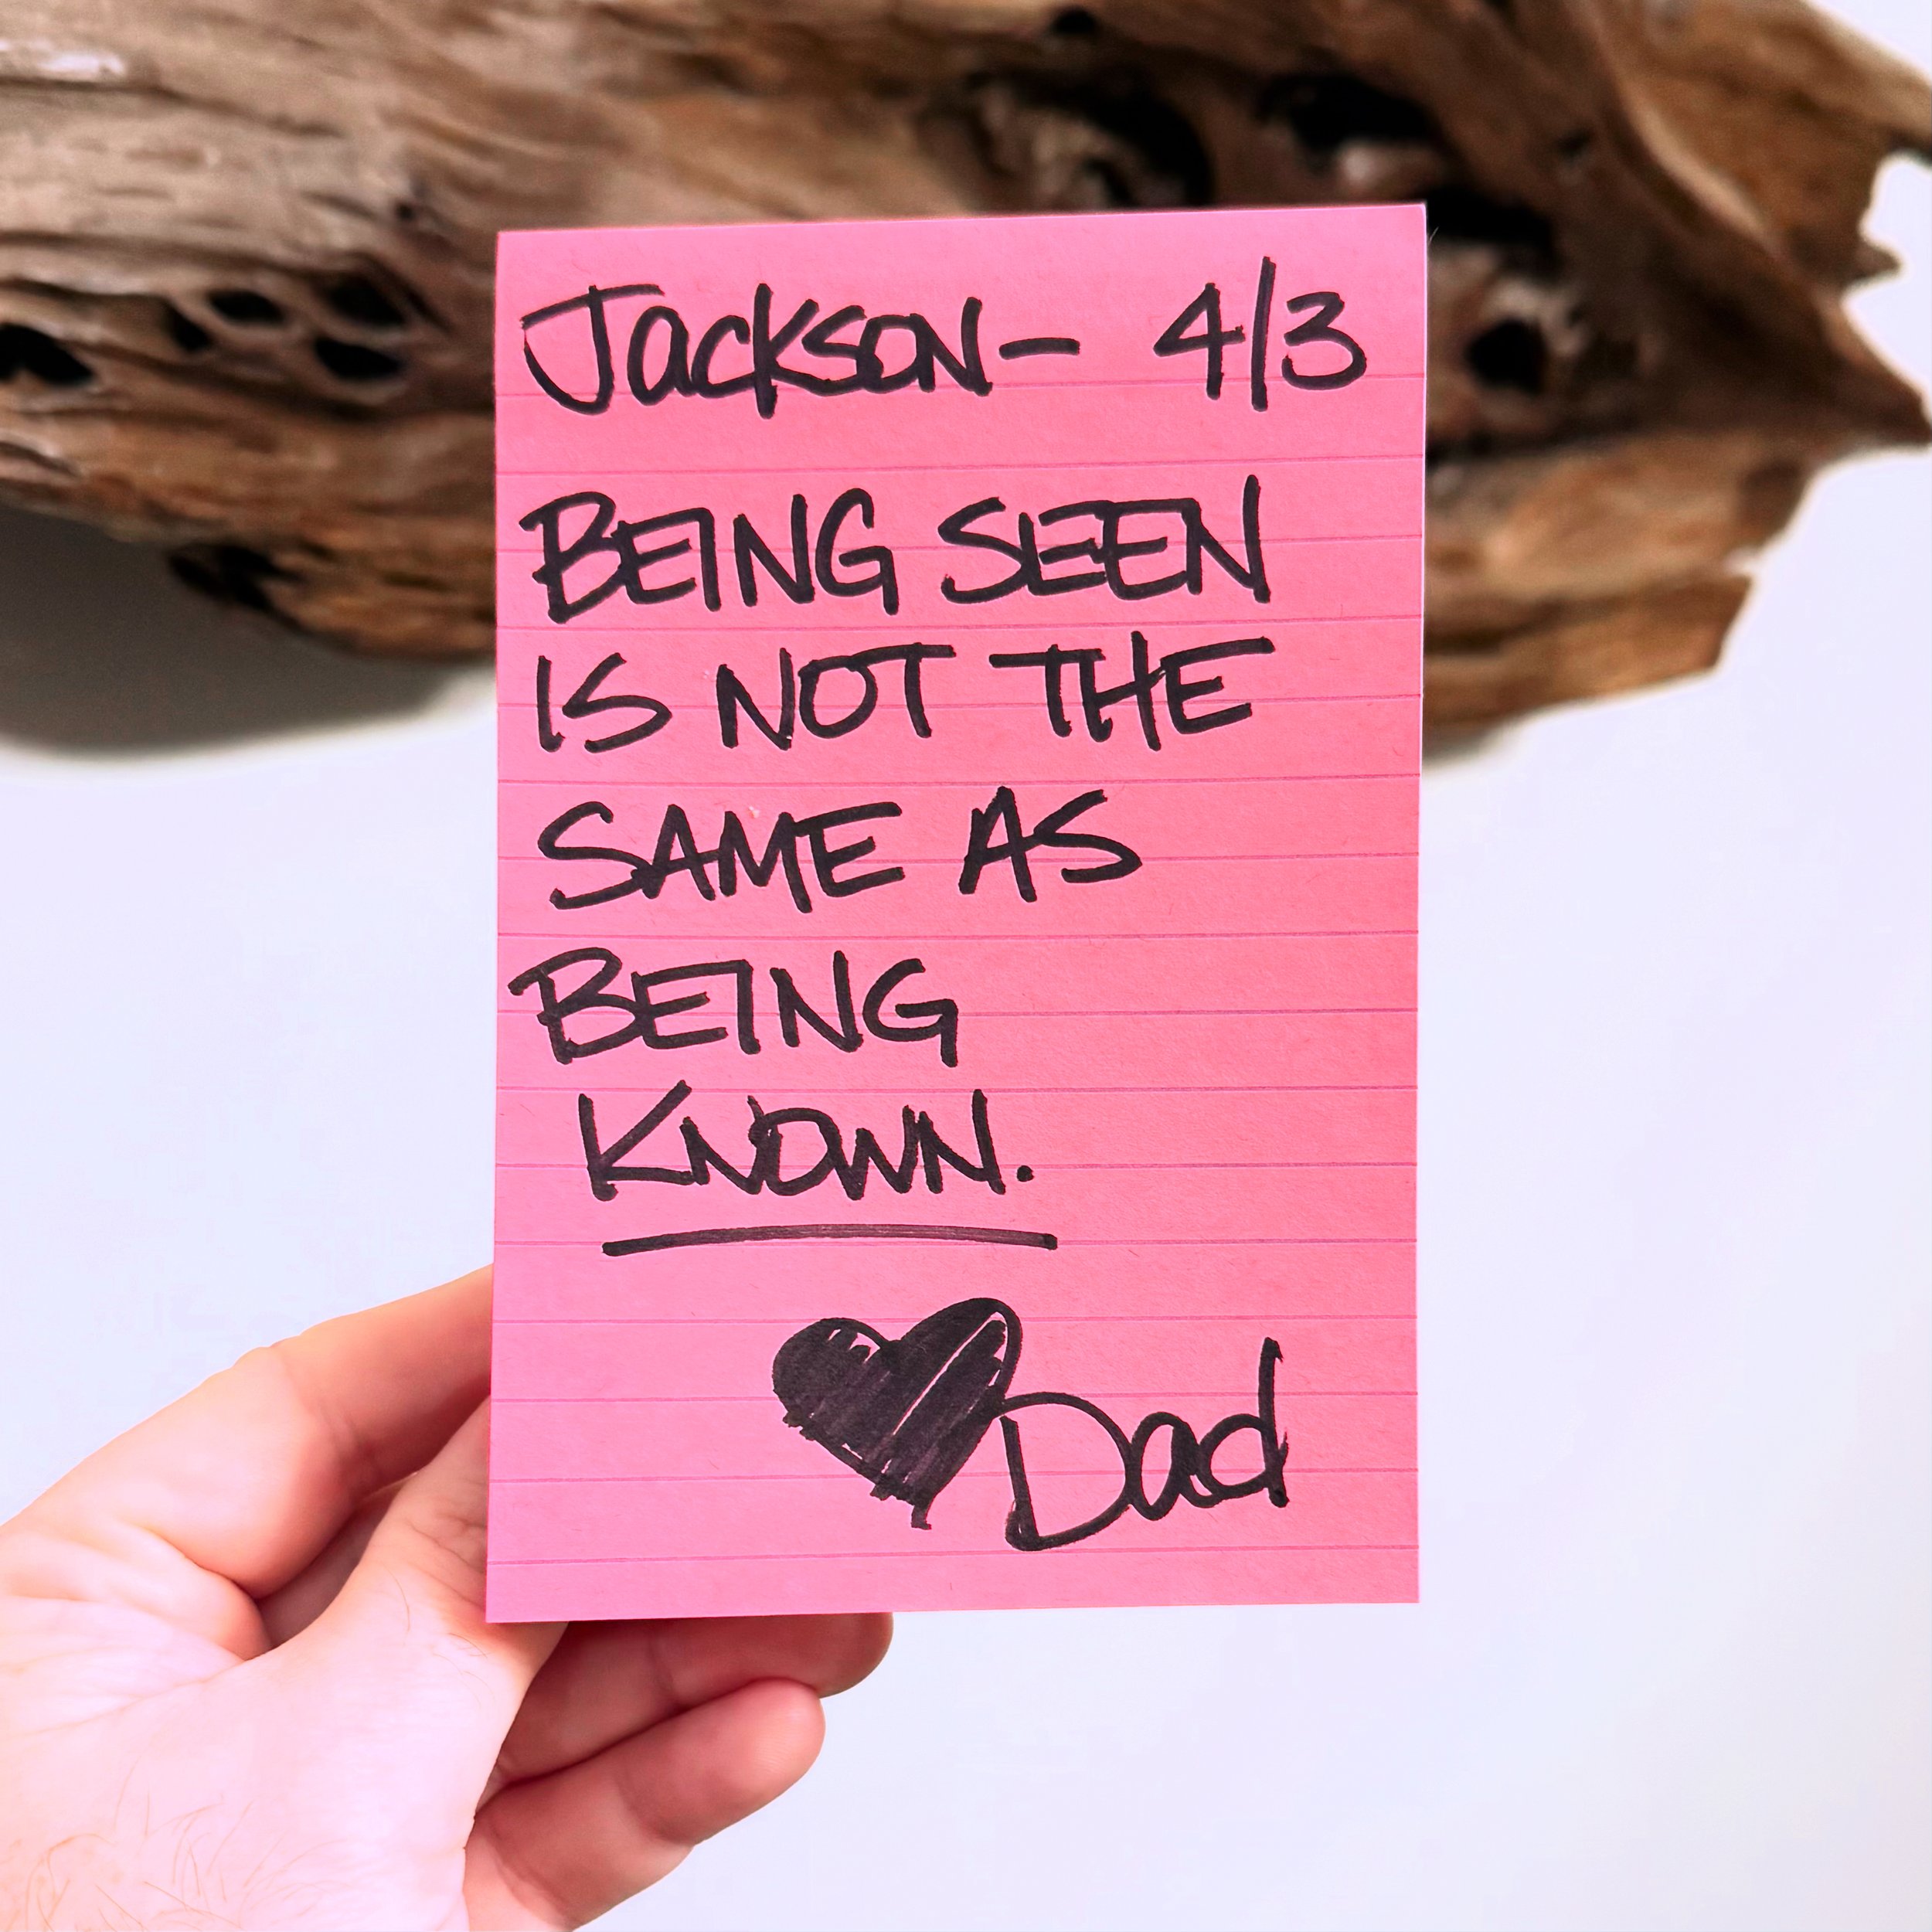 Jackson- 4/3
BEING SEEN
IS NOT THE
SAME AS
BEING
KNOWN.
Dad